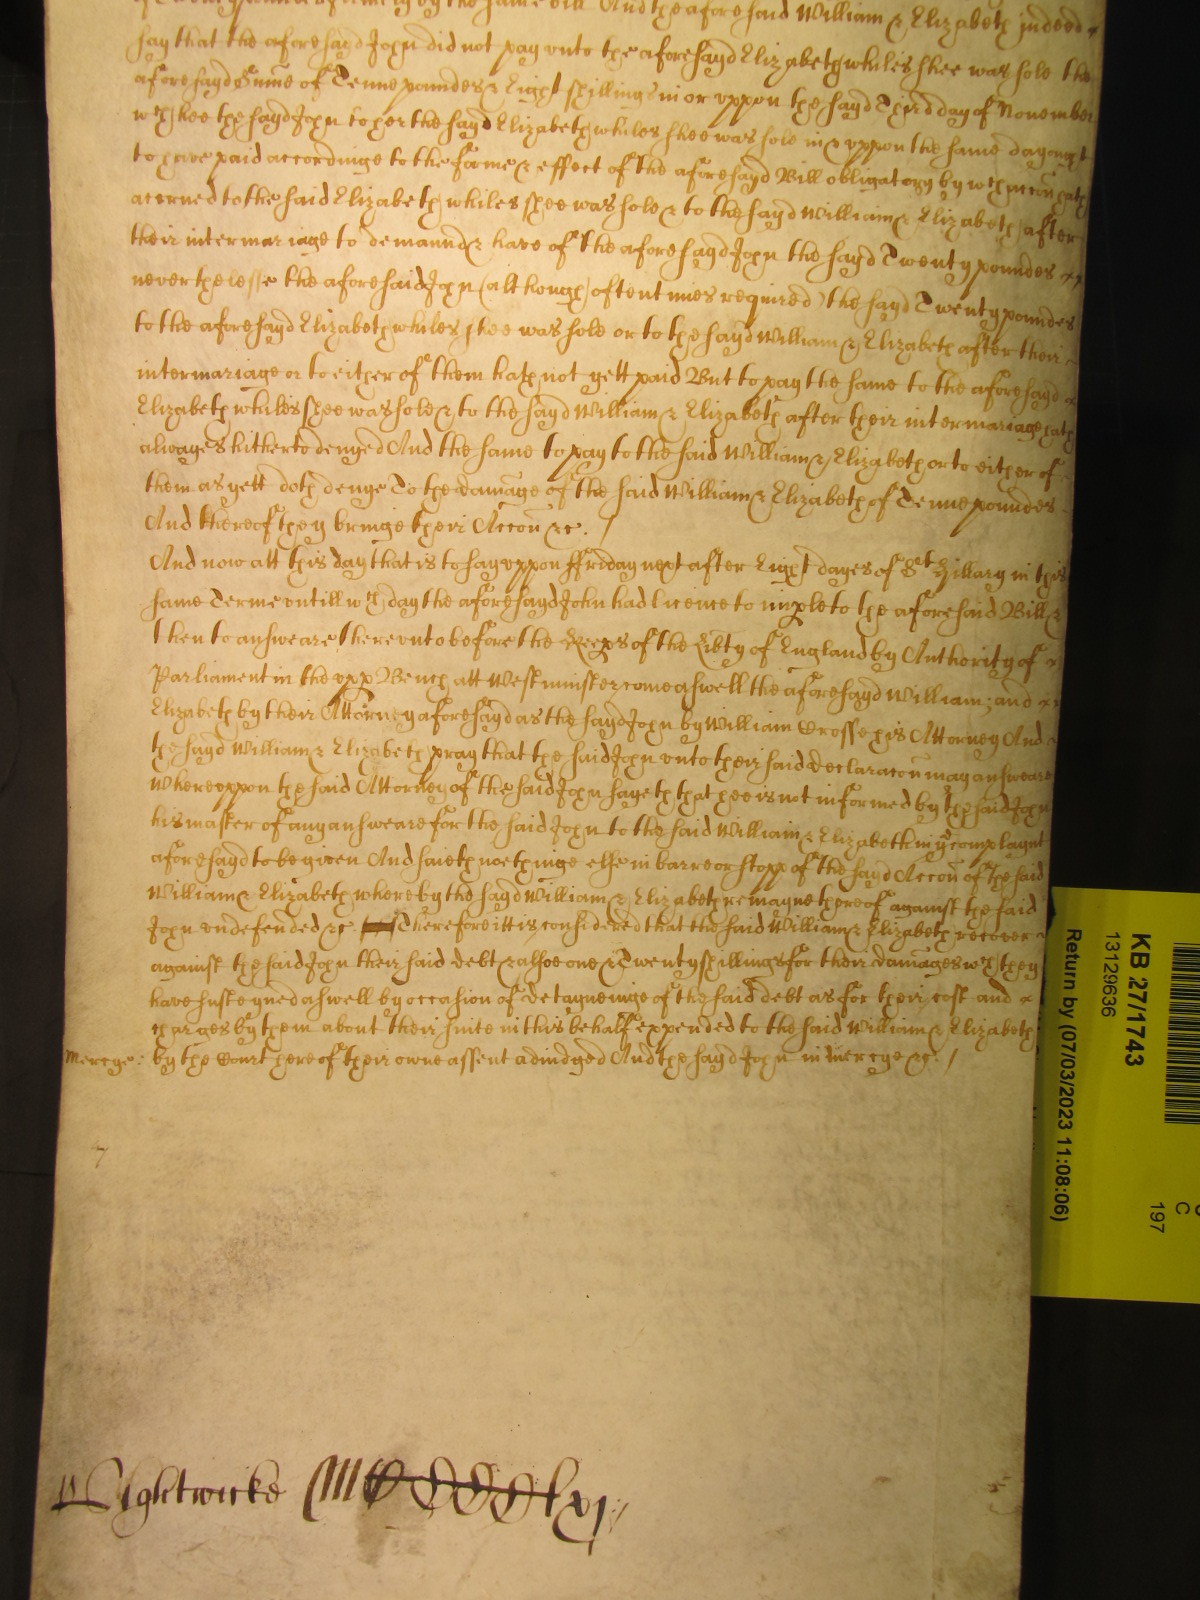 by the same bill And the aforesaid William & Elizabeth indeed
say that the aforesayd John did not pay vnto the aforesayd Elizabeth whiles shee was sole the
aforesayd Sume of Tenne poundes & Eight shillings in or vppon the sayd Third day of November
wch hee the sayd John to her the sayd Elizabeth whiles shee was sole in & vppon the same day ought
to have paid accordinge to the forme & effect of the aforesayd Bill obligatory by wch accon hath
accrued to the said Elizabeth whiles shee was sole & to the sayd William & Elizabeth after
their intermariage to demaund & have of the aforesayd John the sayd Twenty poundes
neverthelesse the aforesaid John (although oftentimes required) the sayd Twenty poundes
to the aforesayd Elizabeth whiles shee was sole or to the sayd William & Elizabeth after their
intermariage or to either of them hath not yett paid But to pay the same to the aforesayd
Elizabeth whiles shee was sole & to the sayd William & Elizabeth after their intermariage hath
alwayes hitherto denyed And the same to pay to the said William & Elizabeth or to either of
them as yett doth denye To the damage of the said William & Elizabeth of Tenne poundes
And thereof they bringe their Accon &c. /
And now att this day that is to say vppon ffriday next after Eight dayes of St Hillary in this
same Terme vntill wch day the aforesayd John had licence to imple to the aforesaid Bill &
then to answeare therevnto before the Keeps of the Libty of England by Authority of
Parliament in the vpp Bench att Westminster come aswell the aforesayd William and
Elizabeth by their Attorney aforesayd as the sayd John by William Crosse his Attorney And
the sayd William & Elizabeth pray that the said John vnto their said declaracon may answeare
Wherevppon the said Attorney of the said John sayeth that hee is not informed by the said John
his master of any answeare for the said John to the said William & Elizabeth in ye complaynt
aforesayd to be given And saieth noethinge else in barre or stopp of the sayd Accon of the said
William & Elizabeth whereby the sayd William & Elizabeth remayne thereof against the said
John vndefended &c Therefore itt is considered that the said William & Elizabeth recover
against the said John their said debt & alsoe one & Twenty shillings for their damages wch they
have susteyned aswell by occasion of deteyneinge of the said debt as for their cost and
charges by them about their suite in this behalf expended to the said William & Elizabeth
Mercye: by the Court here of their owne assent adiudged And the sayd John in mercye &c. /
Lightwicke
KB 27/1743
13129636
Return by (07/03/2023 11:08:06)
C
197